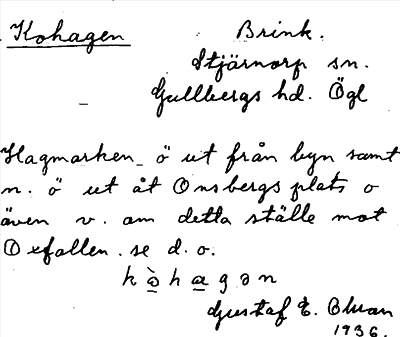 Kohagen
Brink.
Stjärnorp sn.
Gullbergs hd. Ögl
Hagmarken ö ut från byn samt
n. ö ut åt Onsbergs plats o
även v. om detta ställe mot
Oxfallen. se d. o.
k ò h a g ə n
Gustaf E.
1936.